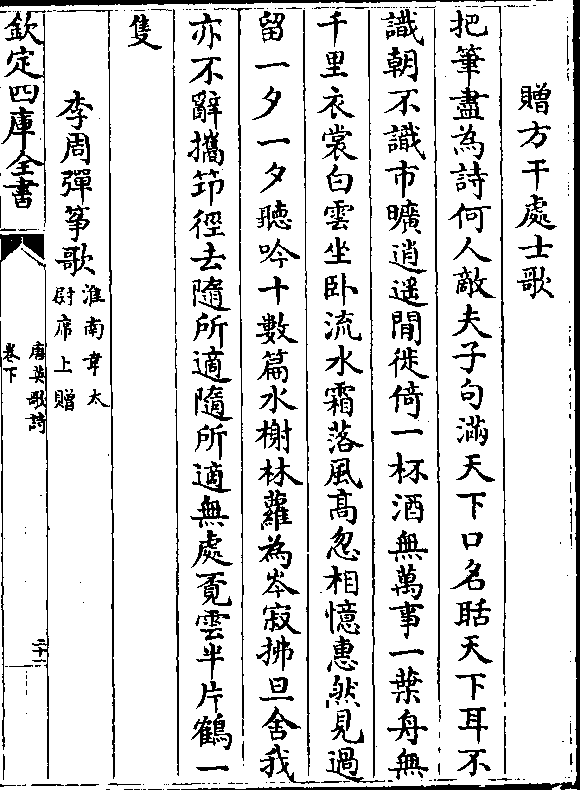 贈方干處士歌
把筆盡為詩何人敵夫子句滿天下口名聒天下耳不
識朝不識市曠逍遥閒徙倚一杯酒無萬事一葉舟無
千里衣裳白雲坐卧流水霜落風髙忽相憶惠然見過
留一夕一夕聽吟十數篇水榭林蘿為岑寂拂旦舍我
亦不辭攜筇徑去隨所適隨所適無處覓雲半片鶴一
隻
李周彈筝歌
淮南韋太
尉席上贈
欽定四庫全書
唐英歌詩
卷下
二十二